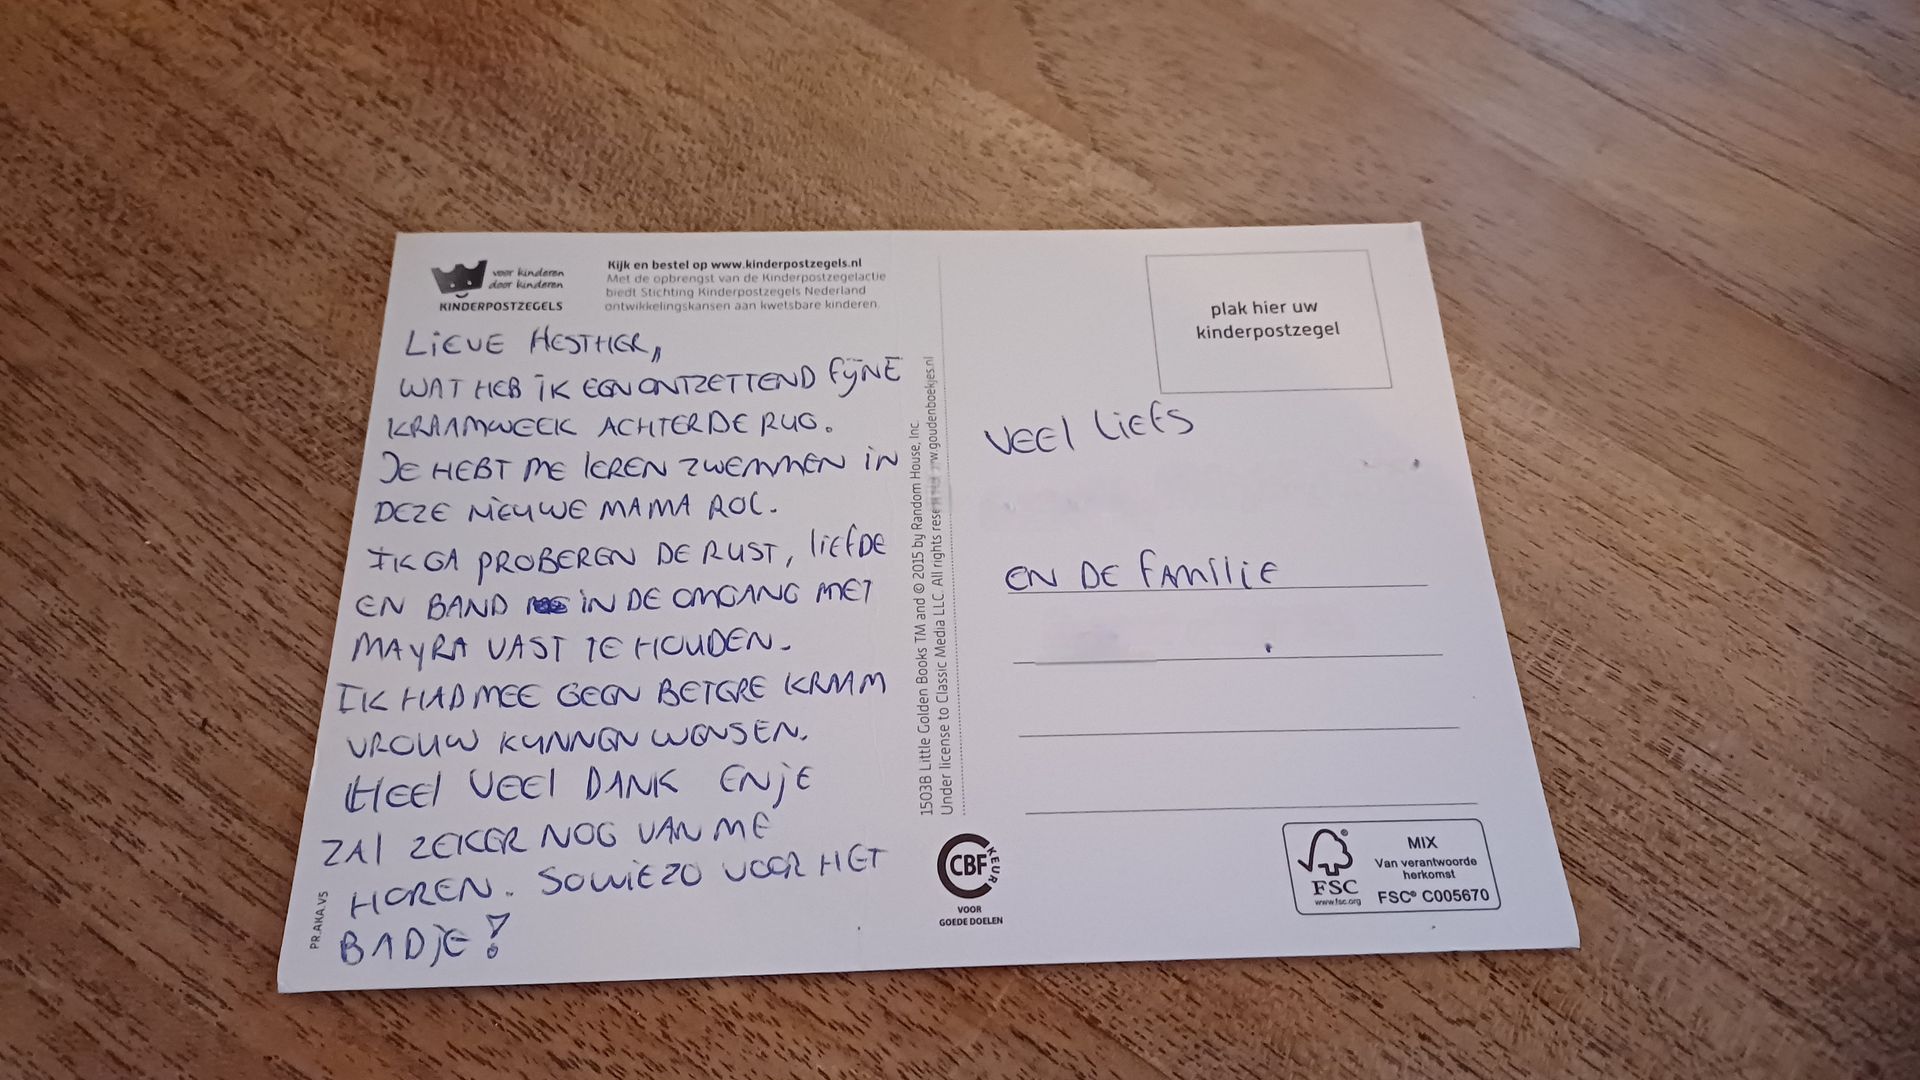 voor kinderen
door kinderen
KINDERPOSTZEGELS
Kijk en bestel op www.kinderpostzegels.nl
Met de opbrengst van de Kinderpostzegelactie
biedt Stichting Kinderpostzegels Nederland
ontwikkelingskansen aan kwetsbare kinderen.
LIEVE HESTHER,,
WAT HEB IK EEN ONTZETTEND FIJNE
KRAAMWEEK ACHTER DE RUG.
JE HEBT ME LEREN ZWEMMEN IN
DEZE NIEUWE MAMA ROL.
IK GA PROBEREN DE RUST, LIEFDE
EN BAND IN DE OMGANG MET
MAYRA VAST TE HOUDEN.
IK HAD MEE GEEN BETERE KRAAM
VROUW KUNNEN WENSEN.
HEEL VEEL DANK EN JE
ZAL ZEKER NOG VAN ME
HOREN. SOWIEZO VOOR HET
BADJE!
PR.AKA.V5
1503B Little Golden Books TM and © 2015 by Random House, Inc
Under license to Classic Media LLC. All rights rese w.goudenboekjes.nl
plak hier uw
kinderpostzegel
VEEL LIEFS
EN DE FAMILIE
CBF
KEUR
VOOR
GOEDE DOELEN
FSC
www.fsc.org
MIX
Van verantwoorde
herkomst
FSC® C005670